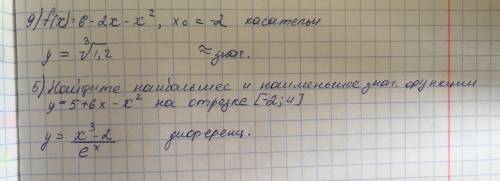 9) f(x)=6-2x-x², x₀ = -2 касательн
y = ∛1,2 ≈ знач.
5) Найдите наибольшее и наименьшее знач. функции
y=5+6x-x² на отрезке [-2;4]
y = (x³-2)/eˣ диференц.